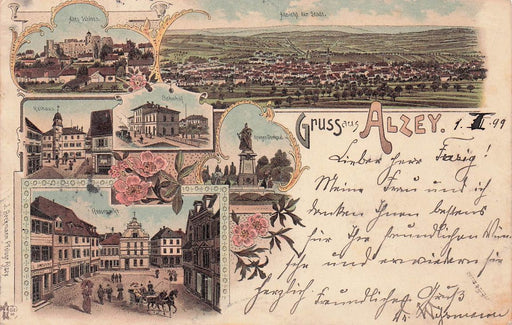 Altes Schloss.
Ansicht der Stadt.
Rathaus.
Bahnhof.
Krieger-Denkmal.
Rossmarkt.
GRUSS aus ALZEY.
1. III. 99
Lieber Herr !
Meine Frau und ich
danken Ihnen bestens
für Ihre freundlichen Wün
sche und erwiedern sie
herzlich. Freundlichen Gruß